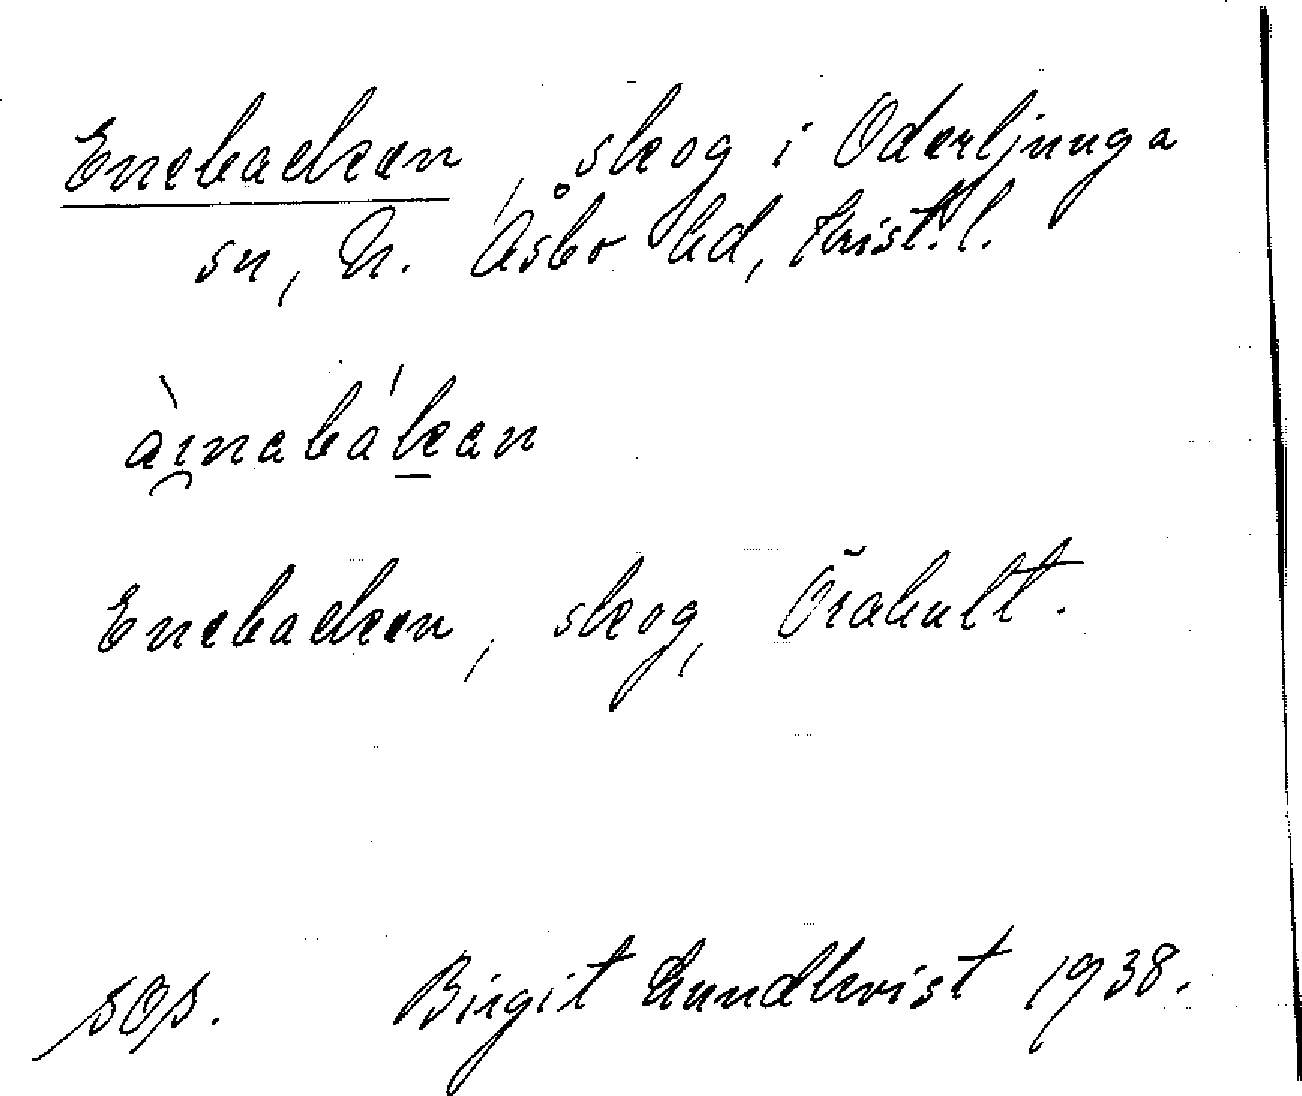 Enebacken, skog i Oderljunga
sn, N. Åsbo hd, Krist. l.
àɪ̯nabák̠an
Enebacken, skog, Örahult.
SOS. Birgit Lundkvist 1938.